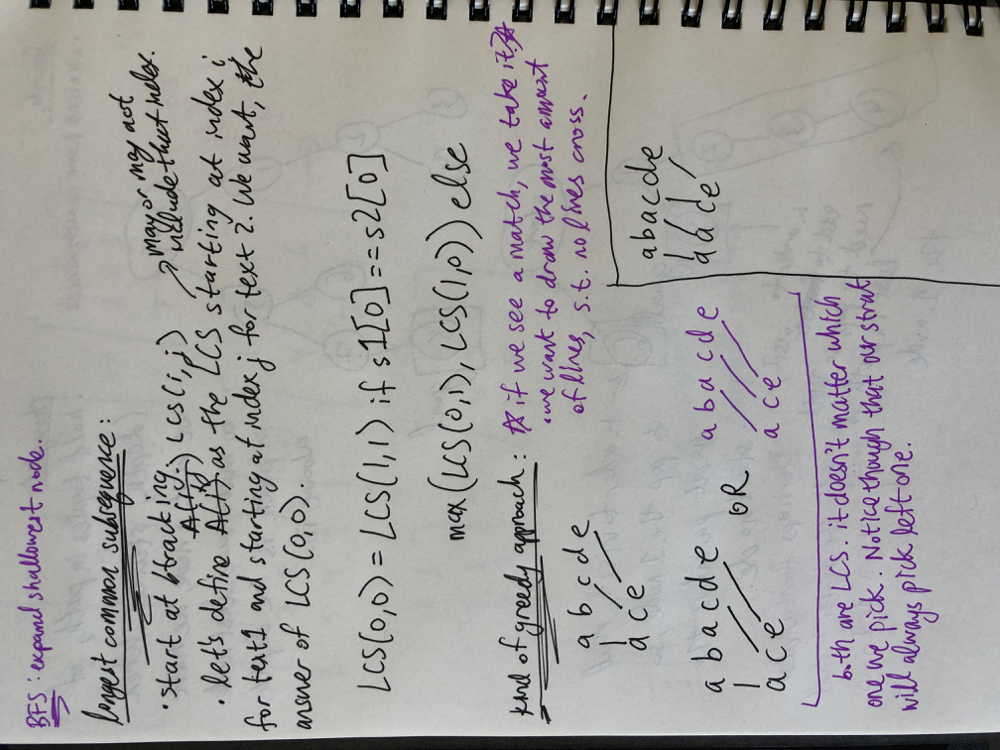 BFS: expand shallowest node.
longest common subsequence:
• start at btracking.
may or may not
include that index.
A(i,j) LCS(i,j)
• let's define A(i,j) as the LCS starting at index i
for text1 and starting at index j for text 2. We want, the
answer of LCS(0,0).
LCS(0,0) = LCS(1,1) if s1[0]==s2[0]
max(LCS(0,1), LCS(1,0)) else
kind of greedy approach: ☆ if we see a match, we take it ☆
• we want to draw the most amount
of lines, s.t. no lines cross.
a b c d e
a c e
a b a c d e
a c e
OR
a b a c d e
a c e
abacde
both are LCS. it doesn't matter which
one we pick. Notice though that our strat
will always pick left one.